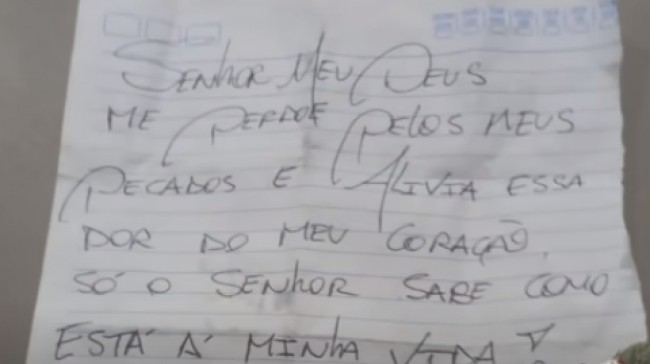 SENHOR MEU DEUS
ME PERDOE PELOS MEUS
PECADOS E ALIVIA ESSA
DOR DO MEU CORAÇÃO.
SÓ O SENHOR SABE COMO
ESTÁ Á MINHA VIDA